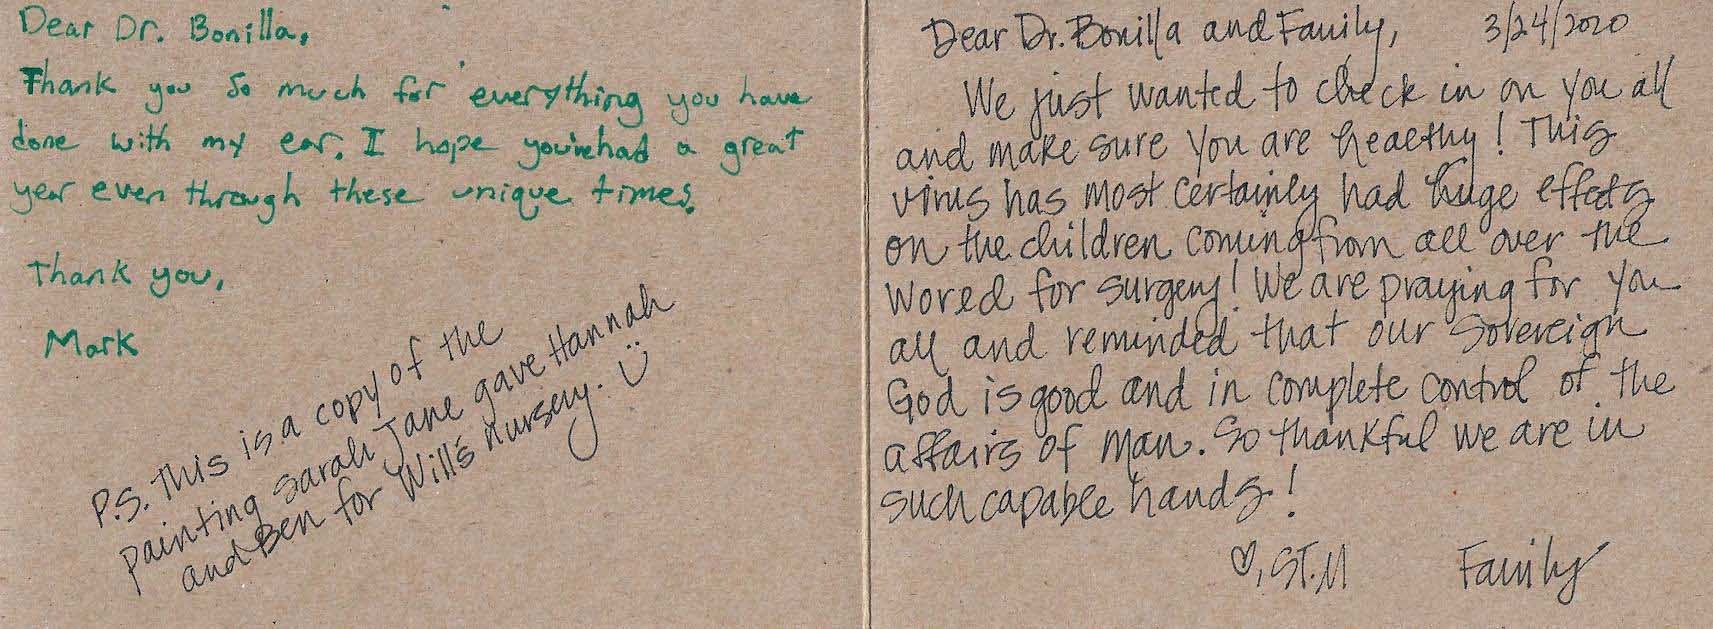 Dear Dr. Bonilla,
Thank you so much for everything you have
done with my ear. I hope you've had a great
year even through these unique times.
Thank you,
Mark
P.S. This is a copy of the
painting Sarah Jane gave Hannah
and Ben for Will's nursery. :)
Dear Dr. Bonilla and Family, 3/24/2020
We just wanted to check in on you all
and make sure you are healthy! This
virus has most certainly had huge effects
on the children coming from all over the
world for surgery! We are praying for you
all and reminded that our Sovereign
God is good and in complete control of the
affairs of man. So thankful we are in
such capable hands!
♡, Family